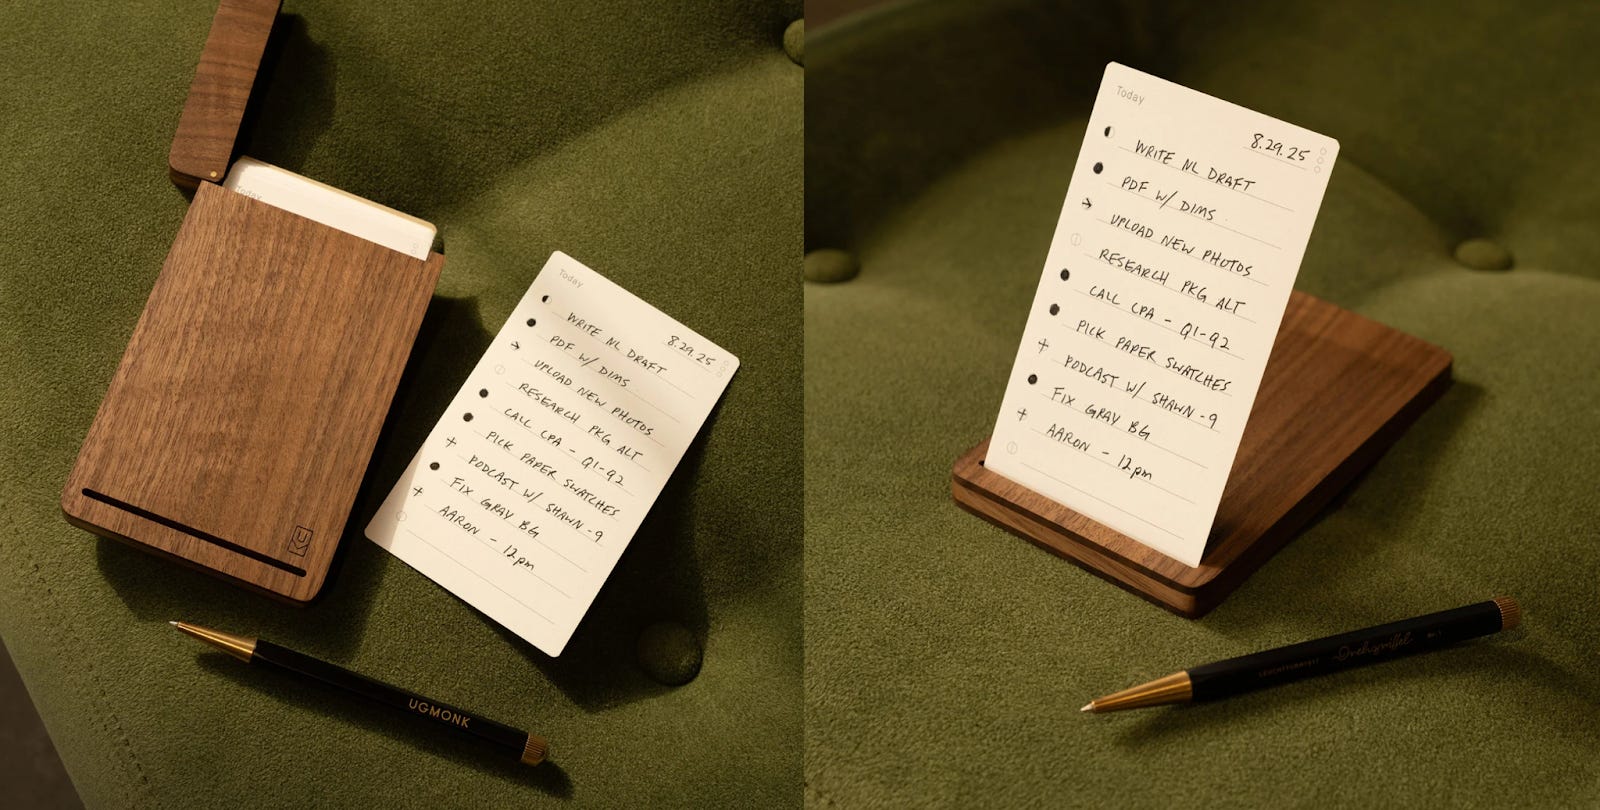 Today
Today
8.29.25
WRITE NL DRAFT
PDF W/ DIMS
UPLOAD NEW PHOTOS
RESEARCH PKG ALT
CALL CPA - Q1-Q2
PICK PAPER SWATCHES
PODCAST W/ SHAWN - 9
FIX GRAY BG
AARON - 12pm
UGMONK
Today
8.29.25
WRITE NL DRAFT
PDF W/ DIMS
UPLOAD NEW PHOTOS
RESEARCH PKG ALT
CALL CPA - Q1-Q2
PICK PAPER SWATCHES
PODCAST W/ SHAWN - 9
FIX GRAY BG
AARON - 12pm
LEUCHTTURM1917 Drehgriffel Nr. 1